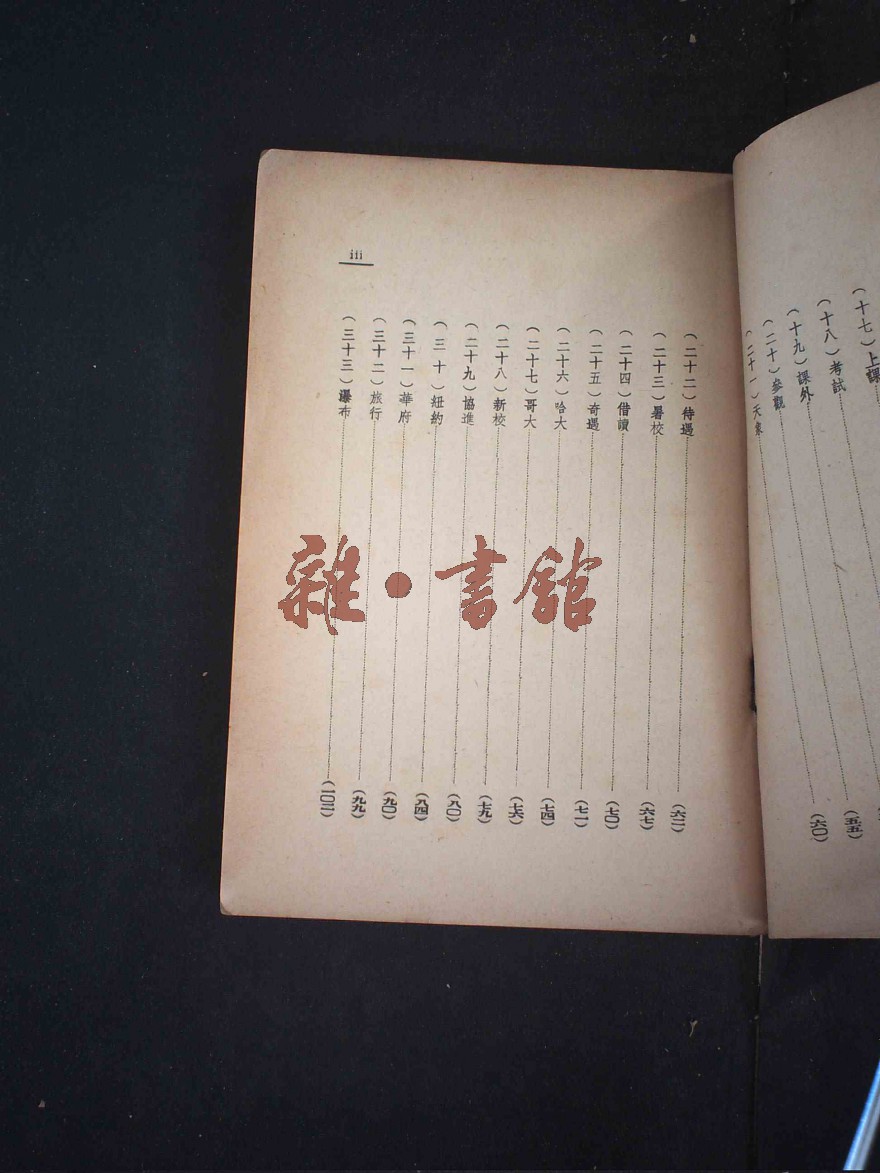 (十七)上課
(十八)考試
(十九)課外(五五)
(二十)參觀(六〇)
(二十一)天象
(二十二)待遇(六二)
(二十三)暑校(六七)
(二十四)借讀(七〇)
(二十五)奇遇(七一)
(二十六)哈大(七四)
(二十七)哥大(七六)
(二十八)新校(七九)
(二十九)協進(八〇)
(三十)紐約(八四)
(三十一)華府(九〇)
(三十二)旅行(九九)
(三十三)瀑布(一〇二)
iii
雜·書館